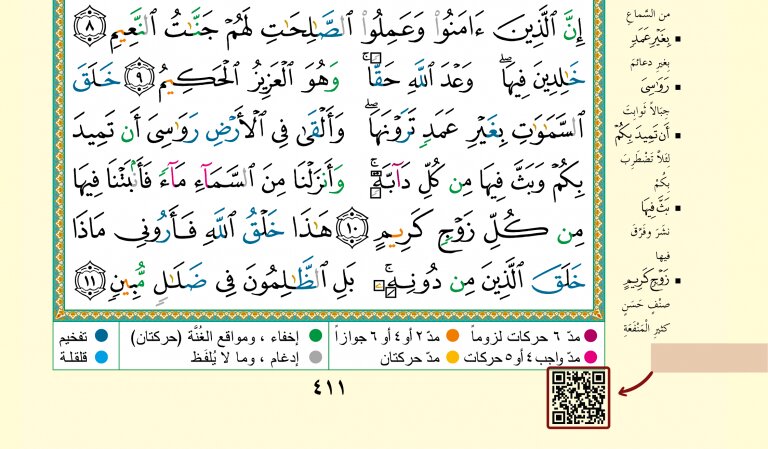 إِنَّ ٱلَّذِينَ ءَامَنُوا۟ وَعَمِلُوا۟ ٱلصَّـٰلِحَـٰتِ لَهُمْ جَنَّـٰتُ ٱلنَّعِيمِ ٨
خَـٰلِدِينَ فِيهَا ۖ وَعْدَ ٱللَّهِ حَقًّا ۚ وَهُوَ ٱلْعَزِيزُ ٱلْحَكِيمُ ٩ خَلَقَ
ٱلسَّمَـٰوَٰتِ بِغَيْرِ عَمَدٍ تَرَوْنَهَا ۖ وَأَلْقَىٰ فِى ٱلْأَرْضِ رَوَٰسِىَ أَن تَمِيدَ
بِكُمْ وَبَثَّ فِيهَا مِن كُلِّ دَآبَّةٍ ۚ وَأَنزَلْنَا مِنَ ٱلسَّمَآءِ مَآءً فَأَنۢبَتْنَا فِيهَا
مِن كُلِّ زَوْجٍ كَرِيمٍ ١٠ هَـٰذَا خَلْقُ ٱللَّهِ فَأَرُونِى مَاذَا
خَلَقَ ٱلَّذِينَ مِن دُونِهِۦ ۚ بَلِ ٱلظَّـٰلِمُونَ فِى ضَلَـٰلٍ مُّبِينٍ ١١
من السَّماعِ
▪ بِغَيْرِ عَمَدٍ
بغيرِ دعائمَ
▪ رَوَٰسِىَ
جبَالاً ثوابِتَ
▪ أَن تَمِيدَ بِكُمْ
لِئَلاّ تَضْطَرِبَ
بِكُمْ
▪ بَثَّ فِيهَا
نشَرَ وفرَّقَ
فيها
▪ زَوْجٍ كَرِيمٍ
صنْفٍ حَسَنٍ
كثيرِ الْمَنْفَعَةِ
مدّ ٦ حركات لزوماً مدّ ٢ أو ٤ أو ٦ جوازاً إخفاء ، ومواقع الغُنَّة (حركتان) تفخيم
مدّ واجب ٤ أو ٥ حركات مدّ حركتان إدغام ، وما لا يُلفَظ قلقلة
٤١١